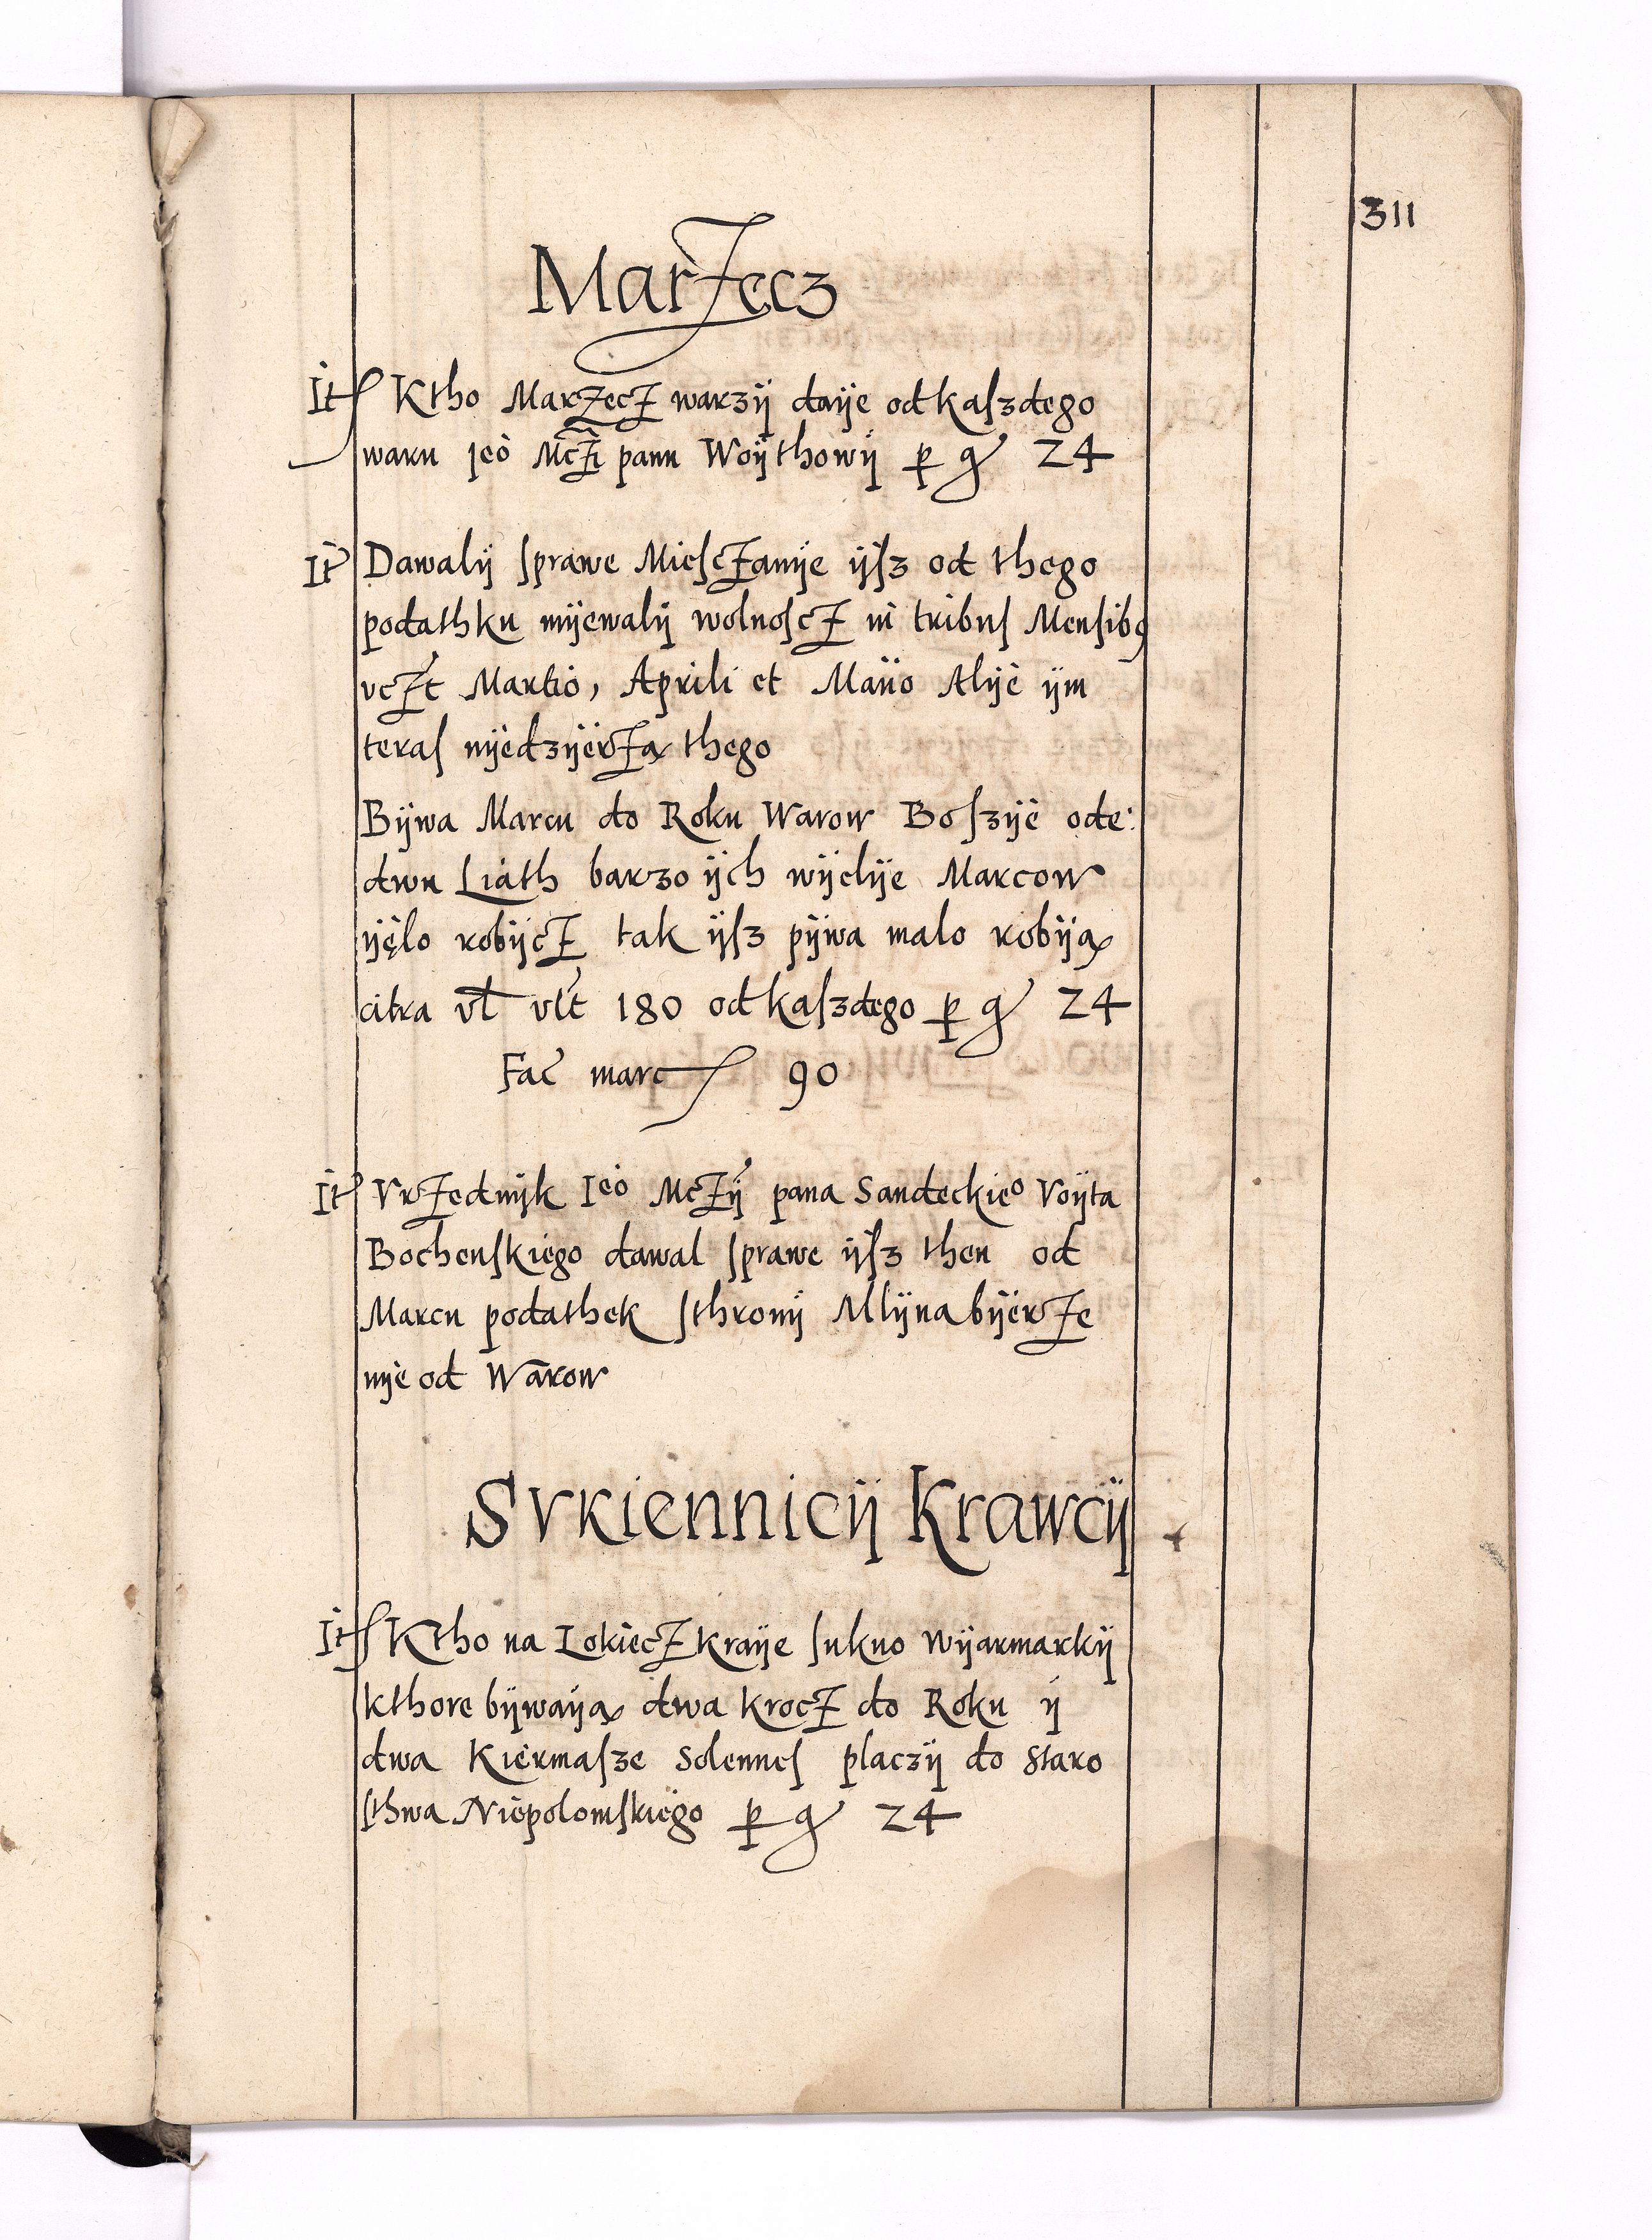 311
Marżecz
It Ktho Marzecż warzÿ daÿe od kaſzdego
waru ieo Mcżi panu Woÿthowÿ p gͬ 24
It Dawalÿ ſprawe Mieſcżanÿe ÿſz od thego
podathku mÿewalÿ wolnoſcż in tribuſ Menſibꝰ
vcżt Martio, Aprili et Maÿo Alÿe ÿm
teraſ nÿedzÿerża thego
Bÿwa Marcu do Roku Warow Boſzÿe ode:
dwu Liath barzo ÿch wÿelÿe Marcow
ÿęlo robÿcż tak ÿſz pÿwa malo robÿą
citra vl vlt 180 od kaſzdego p gͬ 24
Fac marc 90
It Vrżednÿk Ieo Mcżÿ pana Sandeckieo Voÿta
Bochenſkiego dawal ſprawe ÿſz then od
Marcu podathek ſthronÿ Mlÿna bÿerże
nÿe od Warow
SVKiennicÿ Krawcÿ
It Ktho na Lokiecż kraÿe ſukno wÿarmarkÿ
kthore bÿwaÿą dwa krocż do Roku ÿ
dwa Kiermaſze Solenneſ placzÿ do Staro
ſthwa Niepolomſkiego p gͬ 24